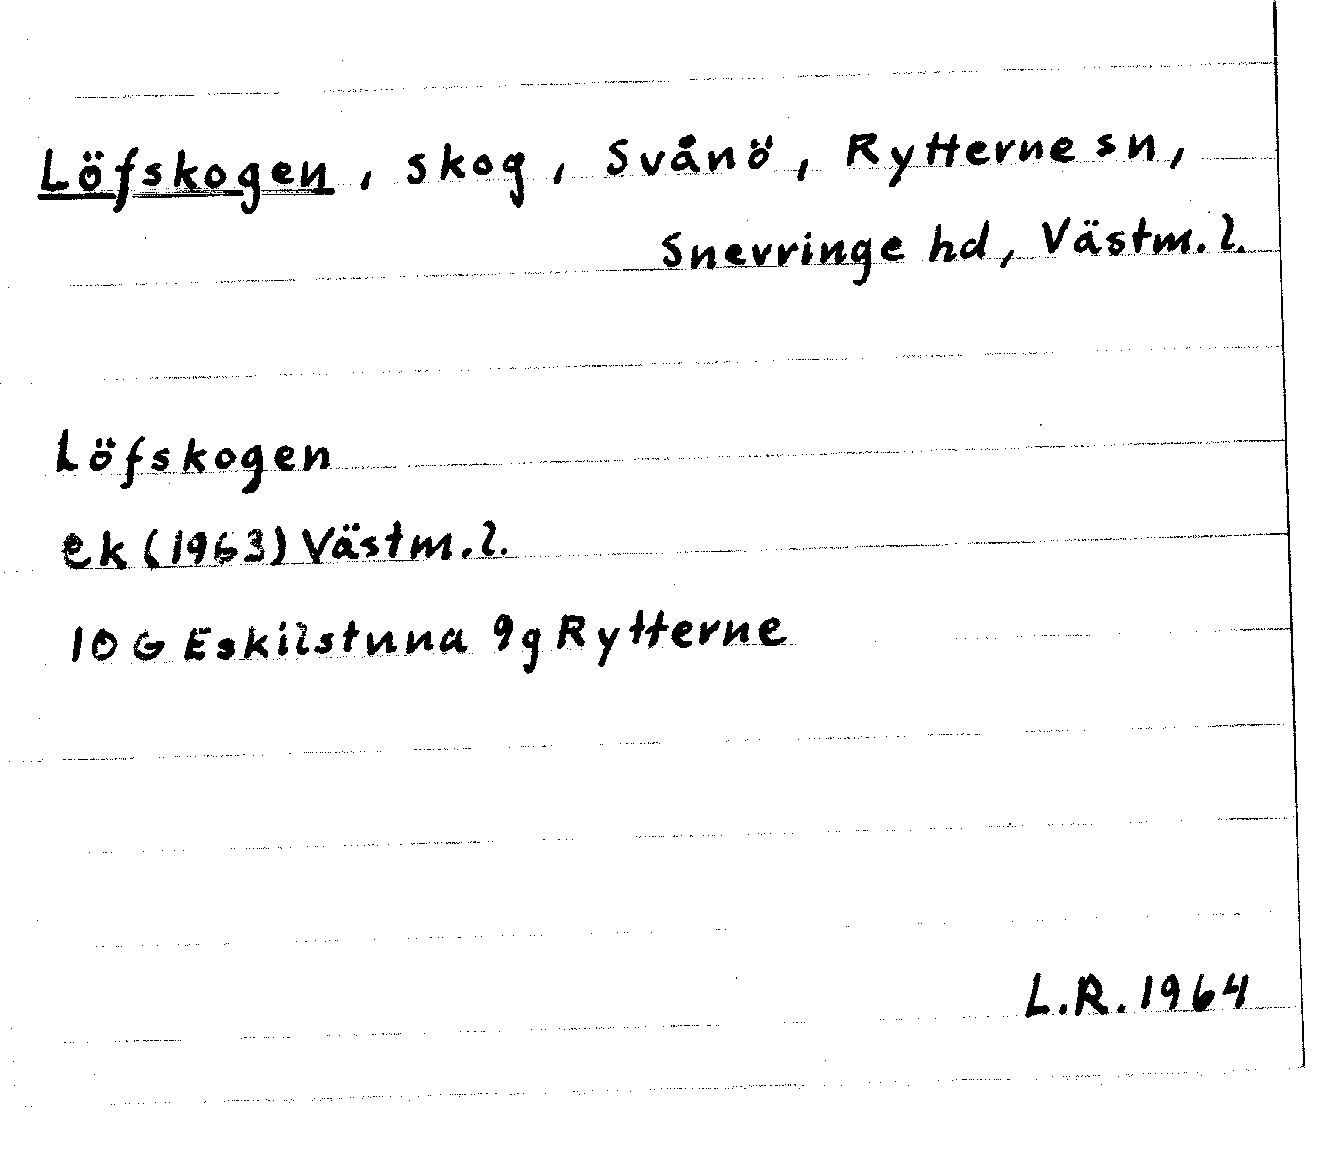 Löfskogen, skog, Svånö, Rytterne sn,
Snevringe hd, Västm. l.
Löfskogen
ek (1963) Västm. l.
10 G Eskilstuna 9g Rytterne
L.R. 1964